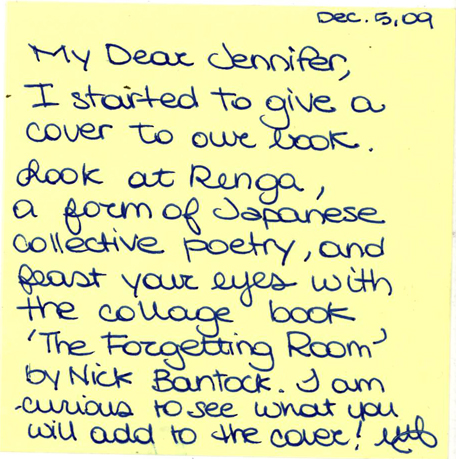 Dec. 5, 09
My Dear Jennifer,
I started to give a
cover to our book.
Look at Renga,
a form of Japanese
collective poetry, and
feast your eyes with
the collage book
'The Forgetting Room'
by Nick Bantock. I am
curious to see what you
will add to the cover!